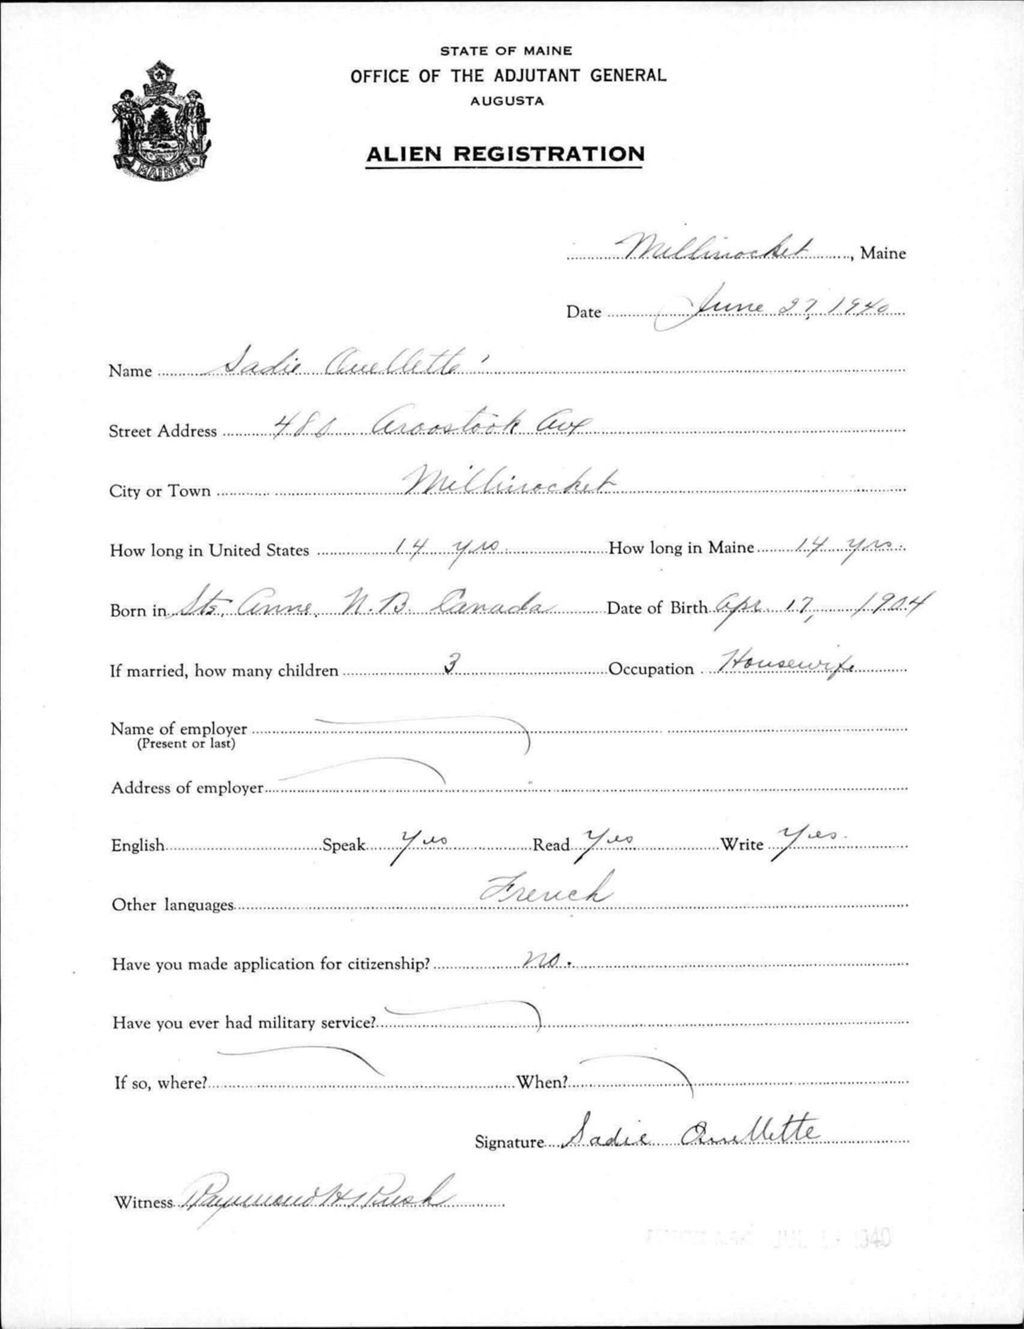 STATE OF MAINE
OFFICE OF THE ADJUTANT GENERAL
AUGUSTA
ALIEN REGISTRATION
MAINE
Millinocket, Maine
Date June 27, 1940
Name Sadie Ouellette
Street Address 480 Aroostook Ave
City or Town Millinocket
How long in United States 14 yrs. How long in Maine 14 yrs.
Born in Ste. Anne, N.B. Canada Date of Birth Apr. 17, 1904
If married, how many children 3 Occupation Housewife
Name of employer
(Present or last)
Address of employer
English Speak Yes Read Yes Write Yes.
Other languages French
Have you made application for citizenship? No.
Have you ever had military service?
If so, where? When?
Signature Sadie Ouellette
Witness Raymond H Rush
JUL 1940